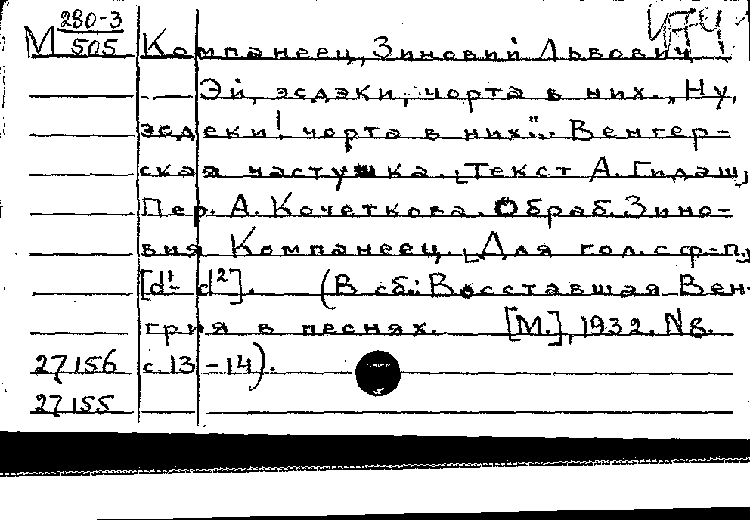 М 280-3/505 Компанеец, Зиновий Львович
Эй, эсдэки, чорта в них. „Ну,
эсдеки! чорта в них". Венгер-
ская частушка. [Текст А. Гидаш,
Пер. А. Кочеткова. Обраб. Зино-
вия Компанеец. [Для гол. с ф-п.]
[d¹- d²]. (В сб.: Восставшая Вен-
грия в песнях. [М.], 1932. N 8.
27156 с. 13-14).
27155